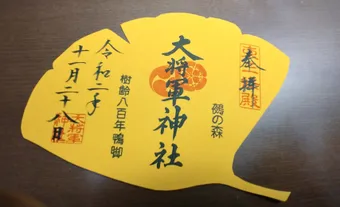 奉拝
鵺の森
大将軍神社
樹齢八百年鴨脚
令和二年
十一月二十八日